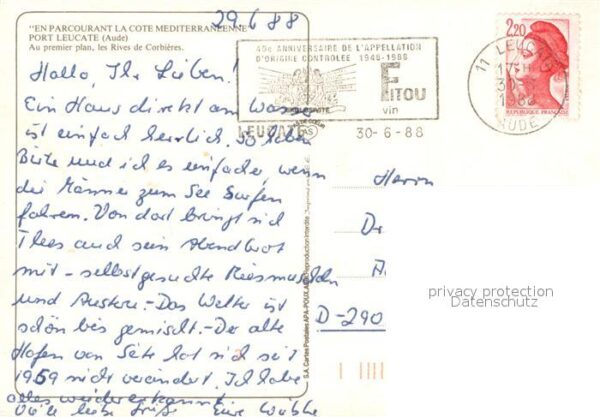 29.6.88
"EN PARCOURANT LA COTE MEDITERRANEENNE"
PORT LEUCATE (Aude)
Au premier plan, les Rives de Corbières.
Hallo, Ihr Lieben!
Ein Haus direkt am Wasser
ist einfach herrlich. So haben
Birte und ich es einfacher, wenn
die Männer zum See Surfen
fahren. Von dort bringt sich
Thees auch sein Abendbrot
mit - selbstgesuchte Riesmuscheln
und Austern. - Das Wetter ist
schön bis gemischt. - Der alte
Hafen von Sète hat sich seit
1959 nicht verändert. Ich habe
alles wiedererkannt.
liebe Grüße Eure Wibke
40e ANNIVERSAIRE DE L'APPELLATION
D'ORIGINE CONTROLEE 1948-1988
FITOU
vin
LEUCATE
30-6-88
2,20
11 LEUCATE
17H
30
1988
AUDE
S.A. Cartes Postales APA-POUX, Reproduction interdite
Herrn
D
A
D-290
privacy protection
Datenschutz